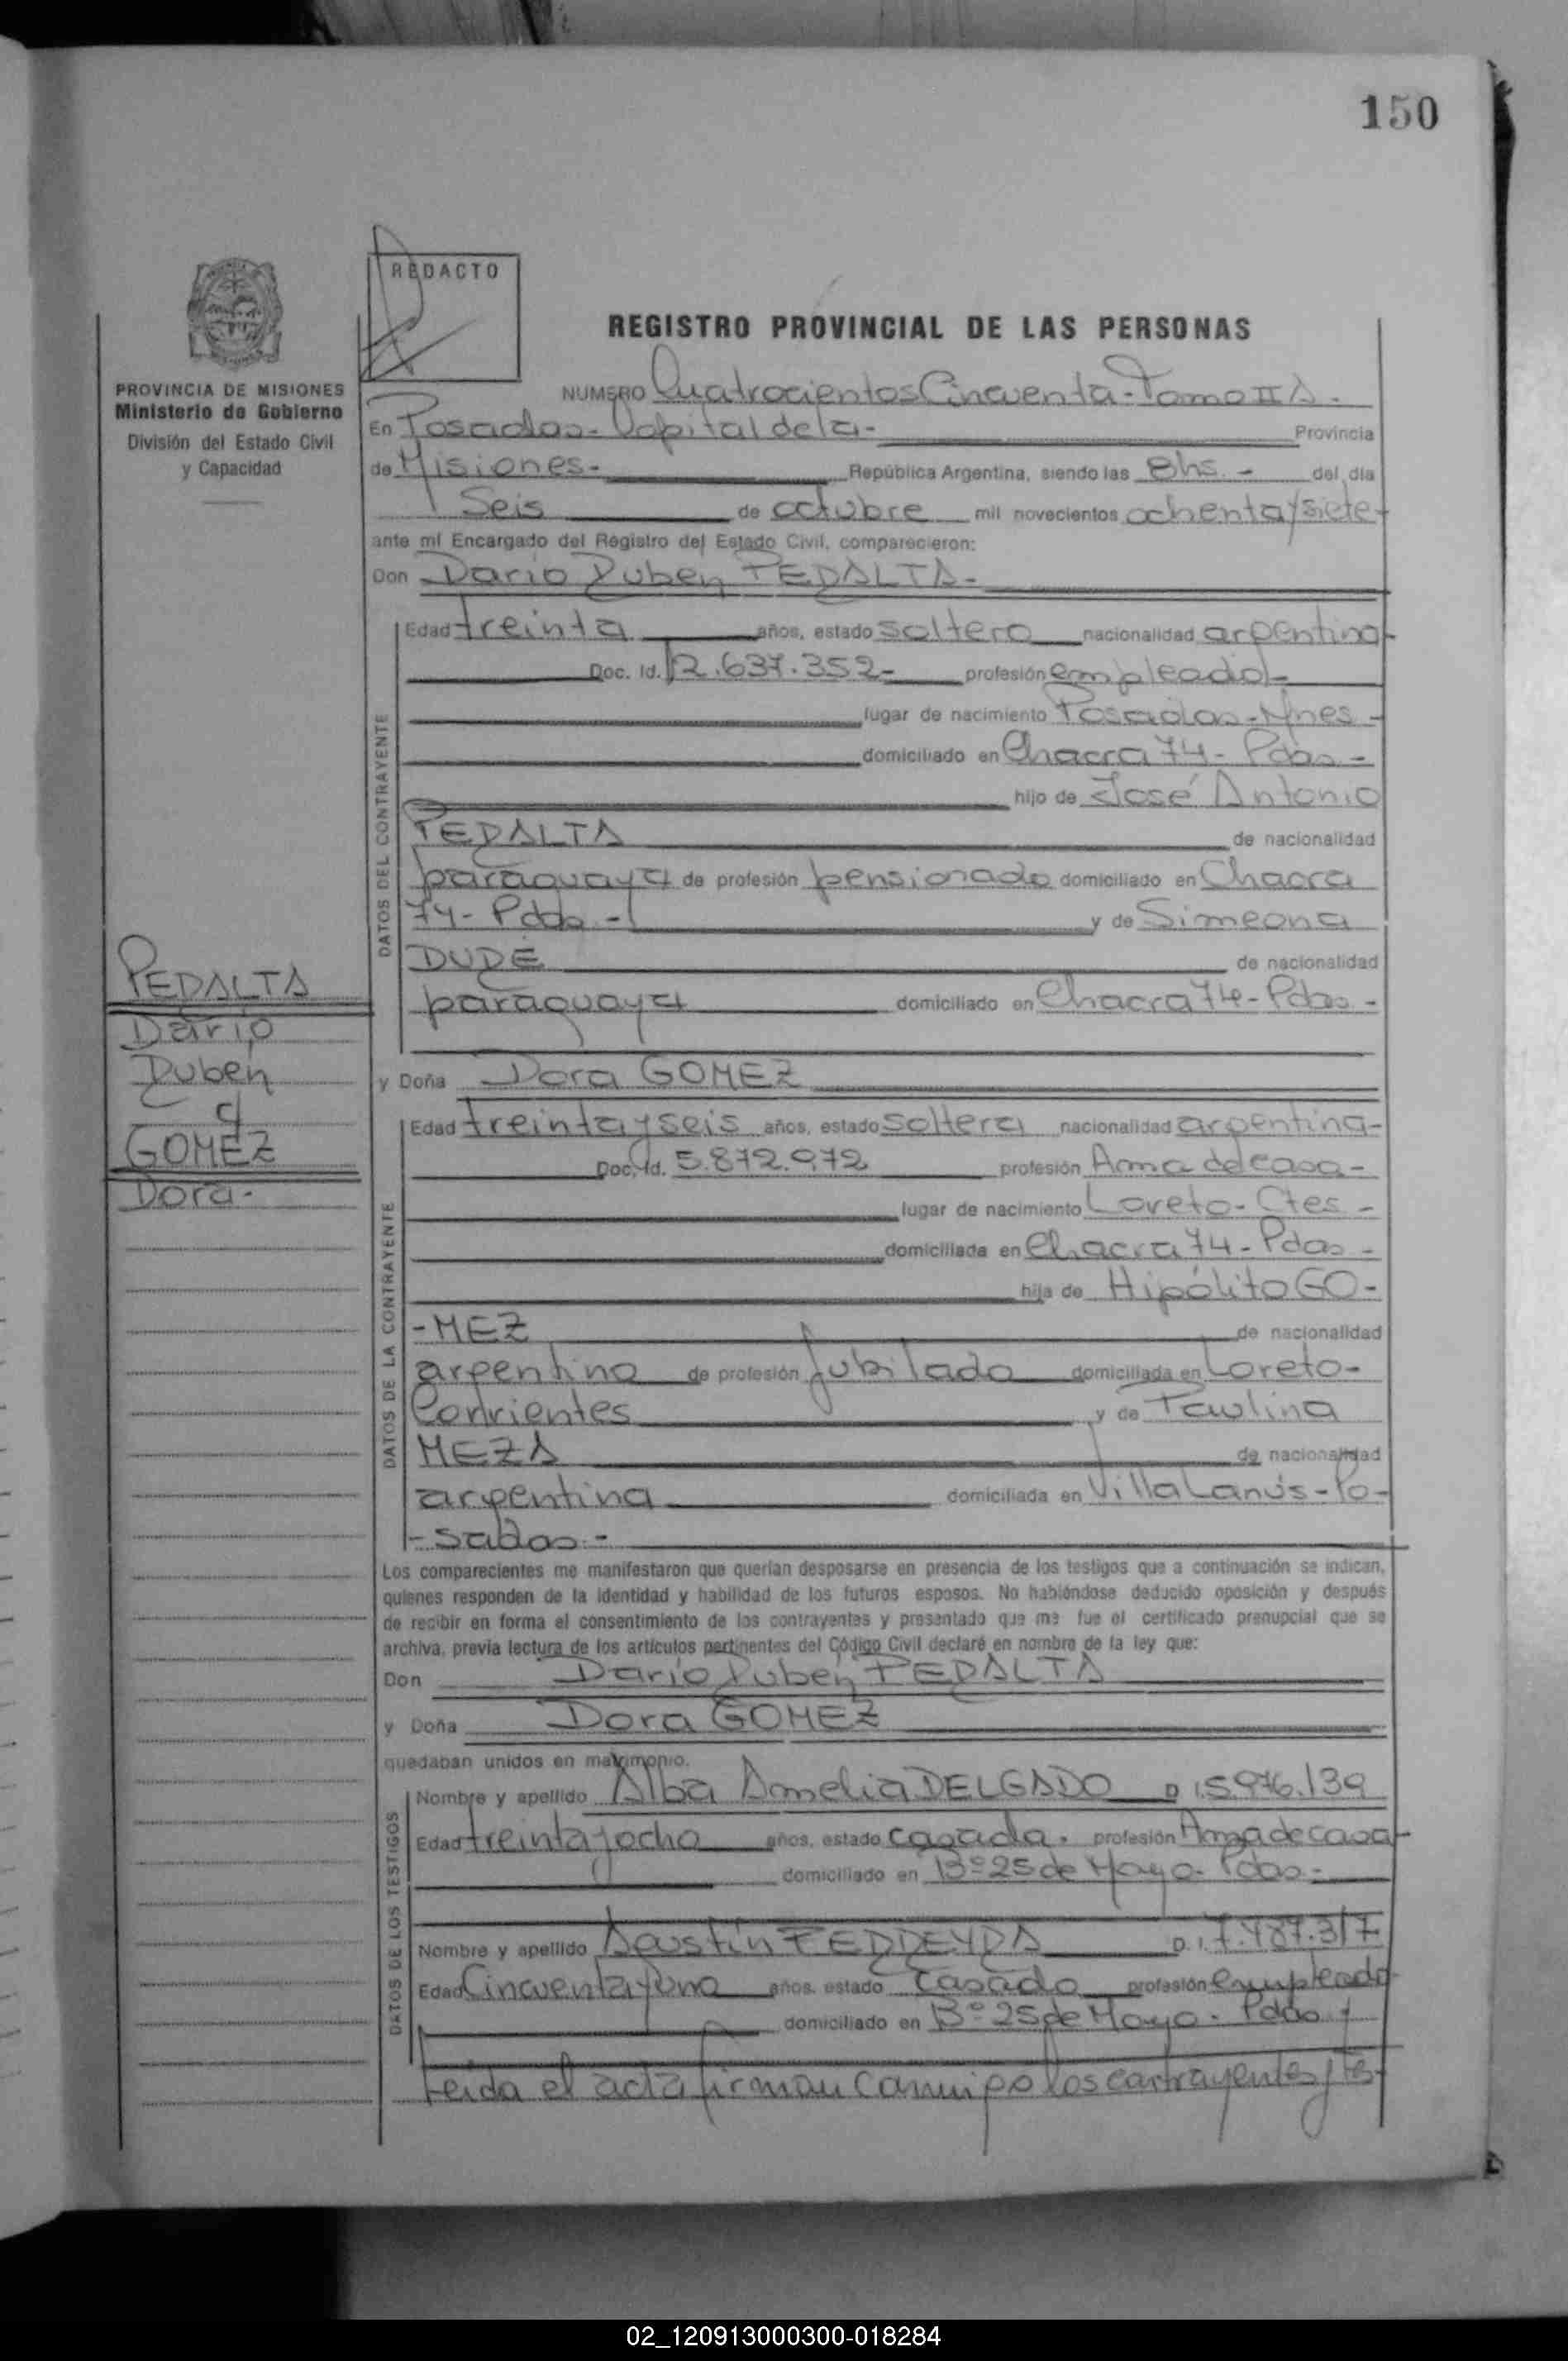 150
REDACTO
REGISTRO PROVINCIAL DE LAS PERSONAS
PROVINCIA DE MISIONES
Ministerio de Gobierno
División del Estado Civil
y Capacidad
NUMERO Cuatrocientos Cincuenta - Tomo II A -
En Posadas - Capital de la - Provincia
de Misiones - República Argentina, siendo las 8hs. - del día
Seis de octubre mil novecientos ochenta y siete -
ante mí Encargado del Registro del Estado Civil, comparecieron:
Don Dario Ruben PERALTA -
DATOS DEL CONTRAYENTE
Edad treinta años, estado soltero nacionalidad argentina -
Doc. Id. 12.637.352 - profesión empleado -
lugar de nacimiento Posadas - Mnes -
domiciliado en Chacra 74 - Pdas -
hijo de José Antonio
PERALTA de nacionalidad
paraguaya de profesión pensionado domiciliado en Chacra
74 - Pdas - y de Simeona
DURÉ de nacionalidad
paraguaya domiciliado en Chacra 74 - Pdas -
PERALTA
Dario
Ruben
y
GOMEZ
Dora -
y Doña Dora GOMEZ
DATOS DE LA CONTRAYENTE
Edad treinta y seis años, estado soltera nacionalidad argentina -
Doc. Id. 5.872.972 profesión Ama de casa -
lugar de nacimiento Loreto - Ctes -
domiciliada en Chacra 74 - Pdas -
hija de Hipólito GO-
-MEZ de nacionalidad
argentina de profesión jubilado domiciliada en Loreto -
Corrientes y de Paulina
MEZA de nacionalidad
argentina domiciliada en Villa Lanús - Po-
-sadas -
Los comparecientes me manifestaron que querían desposarse en presencia de los testigos que a continuación se indican,
quienes responden de la identidad y habilidad de los futuros esposos. No habiéndose deducido oposición y después
de recibir en forma el consentimiento de los contrayentes y presentado que me fue el certificado prenupcial que se
archiva, previa lectura de los artículos pertinentes del Código Civil declaré en nombre de la ley que:
Don Darío Ruben PERALTA
y Doña Dora GOMEZ
quedaban unidos en matrimonio.
DATOS DE LOS TESTIGOS
Nombre y apellido Alba Amelia DELGADO D. I. 5.976.139
Edad treinta y ocho años, estado casada. profesión Ama de casa -
domiciliado en Bº 25 de Mayo - Pdas -
Nombre y apellido Agustín FERREYRA D. I. 7.487.317
Edad Cincuenta y uno años, estado Casado profesión empleado
domiciliado en Bº 25 de Mayo - Pdas -
Leida el acta firman conmigo los contrayentes y tes-
02_120913000300-018284